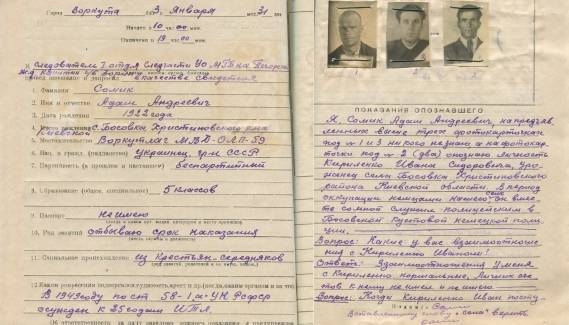 Город Воркута 3, Января мес. 51 г.
Начато в 10 час. 00 мин.
Окончено в 19 час. 00 мин.
Я, следователь I отд-я Следчасти
в качестве свидетеля
1. Фамилия Сомик
2. Имя и отчество Адам Андреевич
3. Дата рождения 1922 года
4. Место рождения с. Босовка, Христиновского р-на
Киевской
5. Местожительство Воркутлаг МВД-ОЛП-59
6. Нац. и гражд. (подданство) украинец, гр-н СССР
7. Партийность беспартийный
8. Образование (общее, специальное) 5 классов
9. Паспорт не имею
10. Род занятий отбываю срок наказания
11. Социальное происхождение из крестьян-середняков
12. Каким репрессиям подвергался
В 1949 году по ст. 58-1 "а" УК РСФСР
осужден к 25 годам ИТЛ.
ПОКАЗАНИЯ ОПОЗНАВШЕГО
Я, Сомик Адам Андреевич, на представ-
ленных выше трех фотокарточках
под № 1 и 3 никого не знаю, а на фотокар-
точки под № 2 (два) опознаю личность
Кириленко Ивана Сидоровича, уро-
женец села Босовка, Христиновского
района Киевской области. В период
оккупации немцами нашего села он вмес-
те со мной служил полицейским в
Босовской Кустовой немецкой поли-
ции.
Вопрос: Какие у вас взаимоотноше-
ния с Кириленко Иваном?
Ответ: Взаимоотношения у меня
с Кириленко нормальные, личных сче-
тов к нему не имел и не имею.
Вопрос: Когда Кириленко Иван посту-
Вставленному слову "села" верить